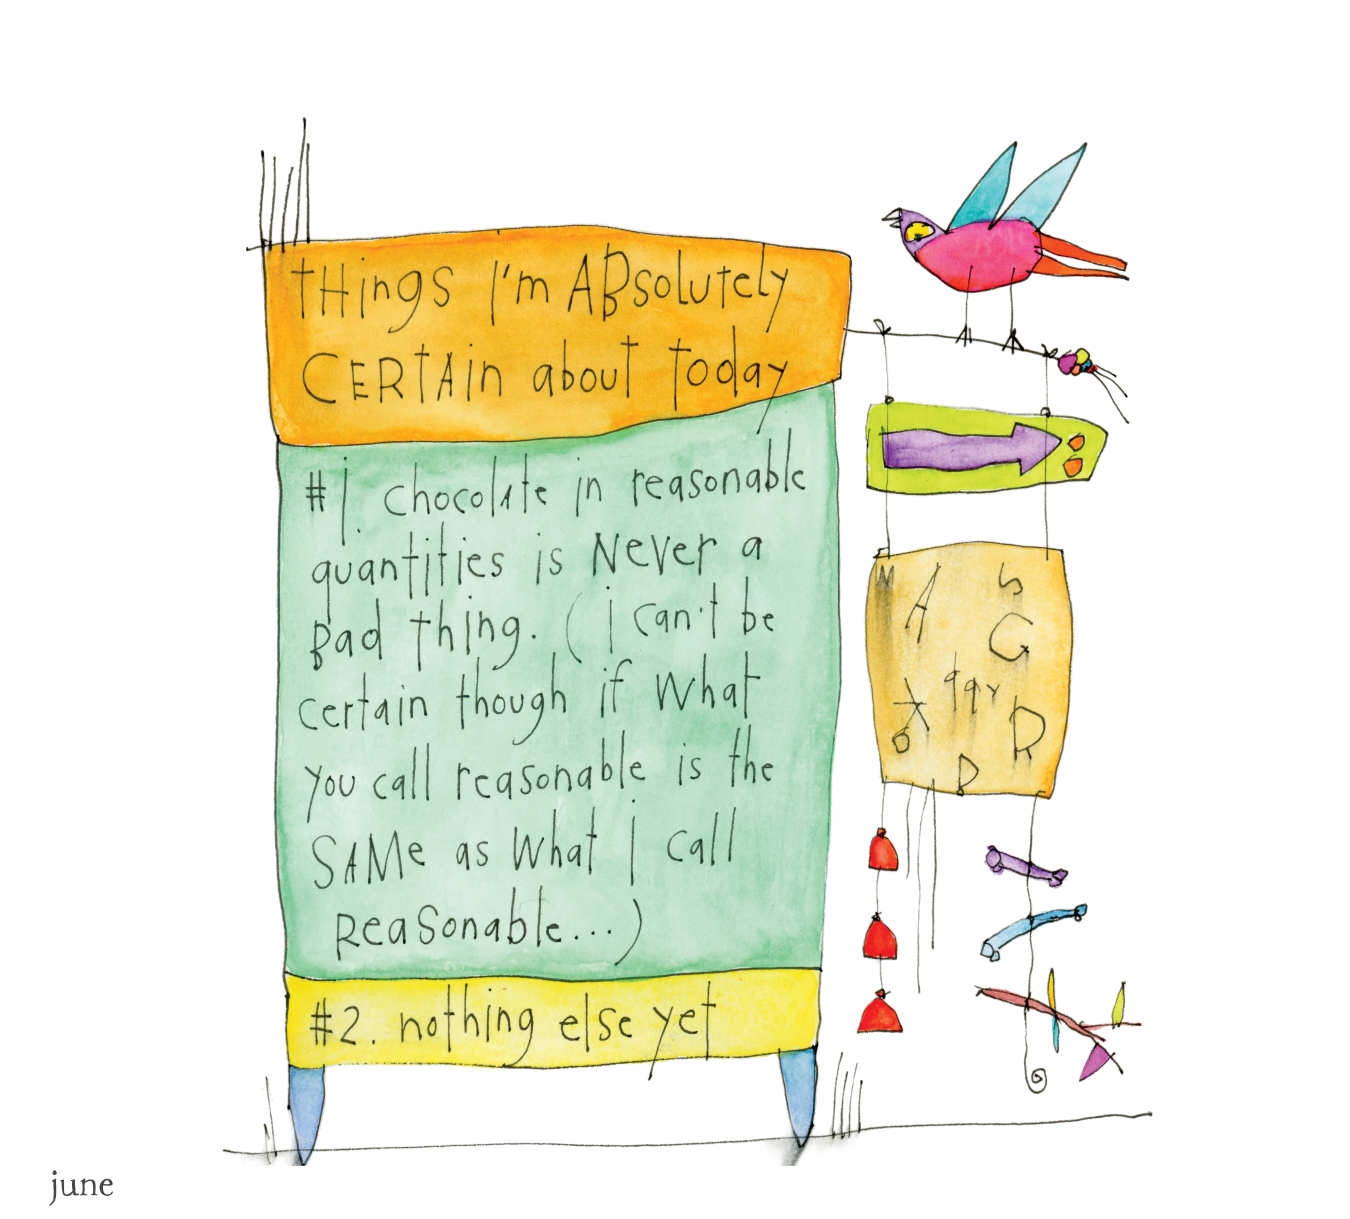 tHings I'm ABsolutely
CERtAin about today
#1. chocolate in reasonable
quantities is Never a
Bad thing. (i can't be
certain though if what
you call reasonable is the
SAMe as what i call
ReaSonable...)
#2. nothing else yet
M A S
G
q q r
R
B
june